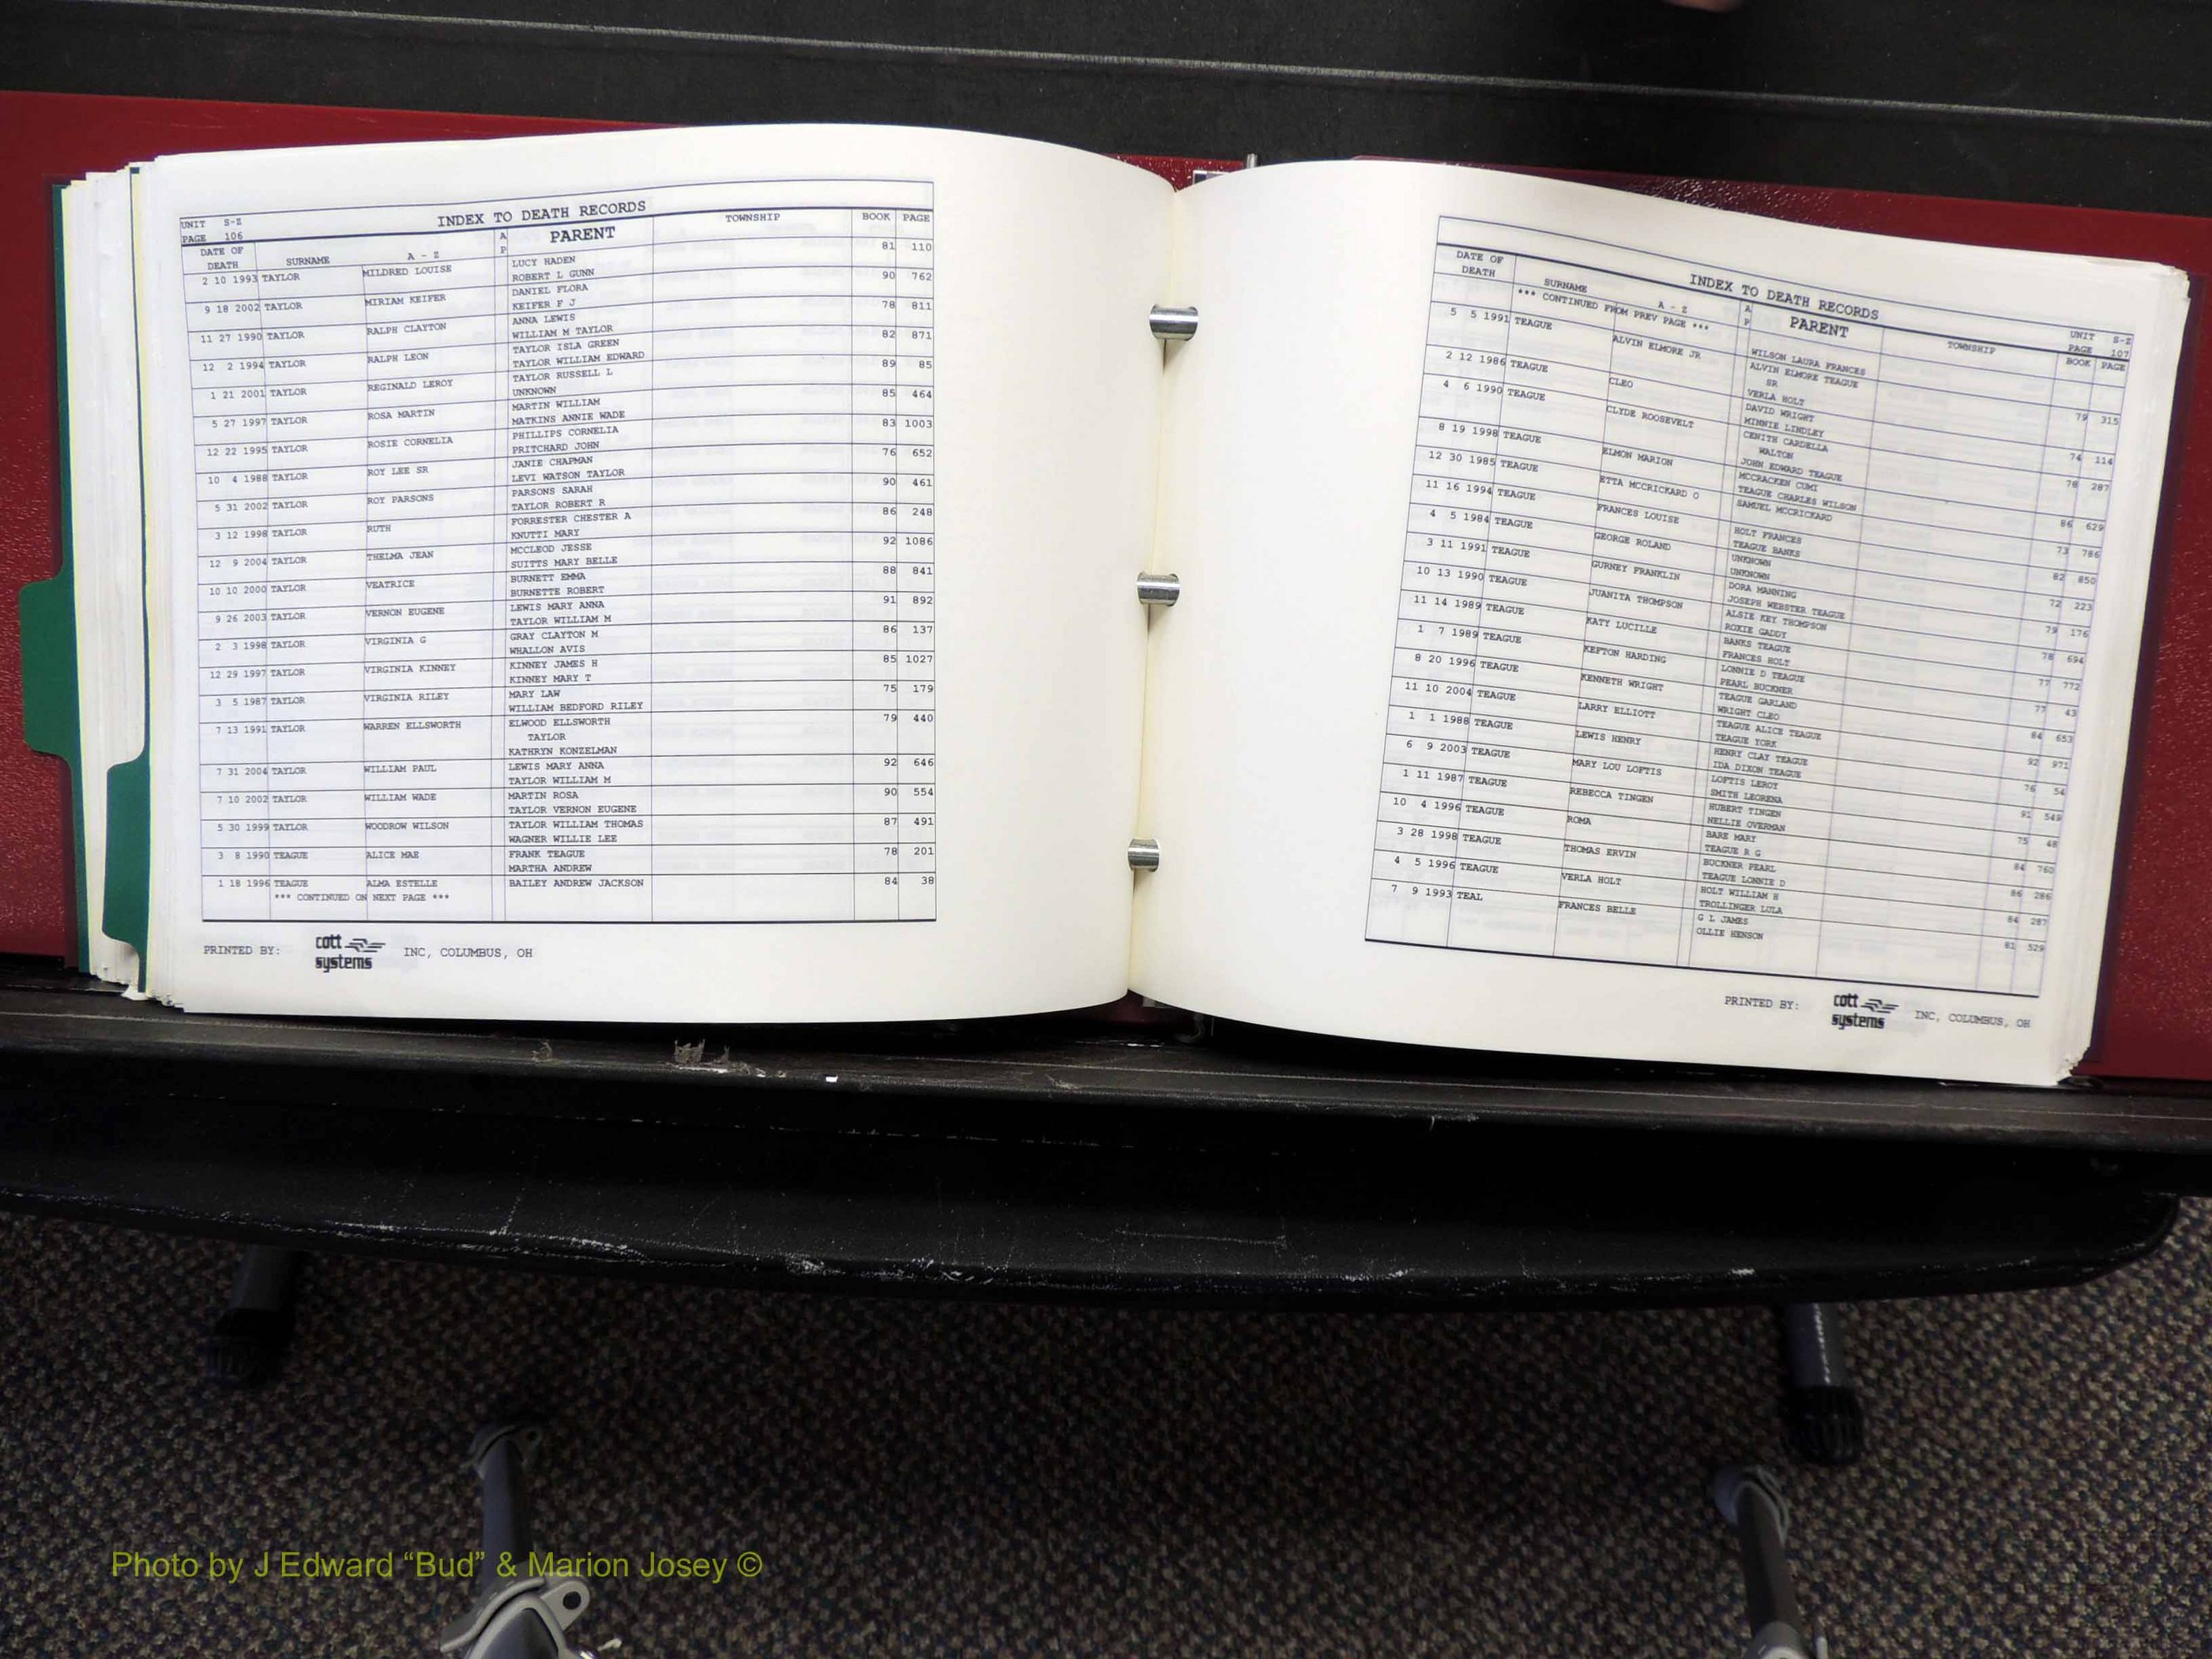 UNIT S-Z
PAGE 106
INDEX TO DEATH RECORDS
DATE OF DEATH SURNAME A - Z A P PARENT TOWNSHIP BOOK PAGE
2 10 1993 TAYLOR MILDRED LOUISE LUCY HADEN 81 110
ROBERT L GUNN
9 18 2002 TAYLOR MIRIAM KEIFER DANIEL FLORA 90 762
KEIFER F J
11 27 1990 TAYLOR RALPH CLAYTON ANNA LEWIS 78 811
WILLIAM M TAYLOR
12 2 1994 TAYLOR RALPH LEON TAYLOR ISLA GREEN 82 871
TAYLOR WILLIAM EDWARD
1 21 2001 TAYLOR REGINALD LEROY TAYLOR RUSSELL L 89 85
UNKNOWN
5 27 1997 TAYLOR ROSA MARTIN MARTIN WILLIAM 85 464
MATKINS ANNIE WADE
12 22 1995 TAYLOR ROSIE CORNELIA PHILLIPS CORNELIA 83 1003
PRITCHARD JOHN
10 4 1988 TAYLOR ROY LEE SR JANIE CHAPMAN 76 652
LEVI WATSON TAYLOR
5 31 2002 TAYLOR ROY PARSONS PARSONS SARAH 90 461
TAYLOR ROBERT R
3 12 1998 TAYLOR RUTH FORRESTER CHESTER A 86 248
KNUTTI MARY
12 9 2004 TAYLOR THELMA JEAN MCCLEOD JESSE 92 1086
SUITTS MARY BELLE
10 10 2000 TAYLOR VEATRICE BURNETT EMMA 88 841
BURNETTE ROBERT
9 26 2003 TAYLOR VERNON EUGENE LEWIS MARY ANNA 91 892
TAYLOR WILLIAM M
2 3 1998 TAYLOR VIRGINIA G GRAY CLAYTON M 86 137
WHALLON AVIS
12 29 1997 TAYLOR VIRGINIA KINNEY KINNEY JAMES H 85 1027
KINNEY MARY T
3 5 1987 TAYLOR VIRGINIA RILEY MARY LAW 75 179
WILLIAM BEDFORD RILEY
7 13 1991 TAYLOR WARREN ELLSWORTH ELWOOD ELLSWORTH 79 440
TAYLOR
KATHRYN KONZELMAN
7 31 2004 TAYLOR WILLIAM PAUL LEWIS MARY ANNA 92 646
TAYLOR WILLIAM M
7 10 2002 TAYLOR WILLIAM WADE MARTIN ROSA 90 554
TAYLOR VERNON EUGENE
5 30 1999 TAYLOR WOODROW WILSON TAYLOR WILLIAM THOMAS 87 491
WAGNER WILLIE LEE
3 8 1990 TEAGUE ALICE MAE FRANK TEAGUE 78 201
MARTHA ANDREW
1 18 1996 TEAGUE ALMA ESTELLE BAILEY ANDREW JACKSON 84 38
*** CONTINUED ON NEXT PAGE ***
PRINTED BY: cott systems INC, COLUMBUS, OH
INDEX TO DEATH RECORDS
UNIT S-Z
PAGE 107
DATE OF DEATH SURNAME A - Z A P PARENT TOWNSHIP BOOK PAGE
*** CONTINUED FROM PREV PAGE *** WILSON LAURA FRANCES
5 5 1991 TEAGUE ALVIN ELMORE JR ALVIN ELMORE TEAGUE 79 315
SR
VERLA HOLT
2 12 1986 TEAGUE CLEO DAVID WRIGHT 74 114
MINNIE LINDLEY
4 6 1990 TEAGUE CLYDE ROOSEVELT CENITH CARDELLA 78 287
WALTON
JOHN EDWARD TEAGUE
8 19 1998 TEAGUE ELMON MARION MCCRACKEN CUMI 86 629
TEAGUE CHARLES WILSON
12 30 1985 TEAGUE ETTA MCCRICKARD O SAMUEL MCCRICKARD 73 786
11 16 1994 TEAGUE FRANCES LOUISE HOLT FRANCES 82 850
TEAGUE BANKS
4 5 1984 TEAGUE GEORGE ROLAND UNKNOWN 72 223
UNKNOWN
3 11 1991 TEAGUE GURNEY FRANKLIN DORA MANNING 79 176
JOSEPH WEBSTER TEAGUE
10 13 1990 TEAGUE JUANITA THOMPSON ALSIE KEY THOMPSON 78 694
ROXIE GADDY
11 14 1989 TEAGUE KATY LUCILLE BANKS TEAGUE 77 772
FRANCES HOLT
1 7 1989 TEAGUE KEFTON HARDING LONNIE D TEAGUE 77 43
PEARL BUCKNER
8 20 1996 TEAGUE KENNETH WRIGHT TEAGUE GARLAND 84 653
WRIGHT CLEO
11 10 2004 TEAGUE LARRY ELLIOTT TEAGUE ALICE TEAGUE 92 971
TEAGUE YORK
1 1 1988 TEAGUE LEWIS HENRY HENRY CLAY TEAGUE 76 54
IDA DIXON TEAGUE
6 9 2003 TEAGUE MARY LOU LOFTIS LOFTIS LEROY 91 549
SMITH LEORENA
1 11 1987 TEAGUE REBECCA TINGEN HUBERT TINGEN 75 48
NELLIE OVERMAN
10 4 1996 TEAGUE ROMA BARE MARY 84 760
TEAGUE R G
3 28 1998 TEAGUE THOMAS ERVIN BUCKNER PEARL 86 286
TEAGUE LONNIE D
4 5 1996 TEAGUE VERLA HOLT HOLT WILLIAM H 84 287
TROLLINGER LULA
7 9 1993 TEAL FRANCES BELLE G L JAMES 81 529
OLLIE HENSON
PRINTED BY: cott systems INC, COLUMBUS, OH
Photo by J Edward “Bud” & Marion Josey ©